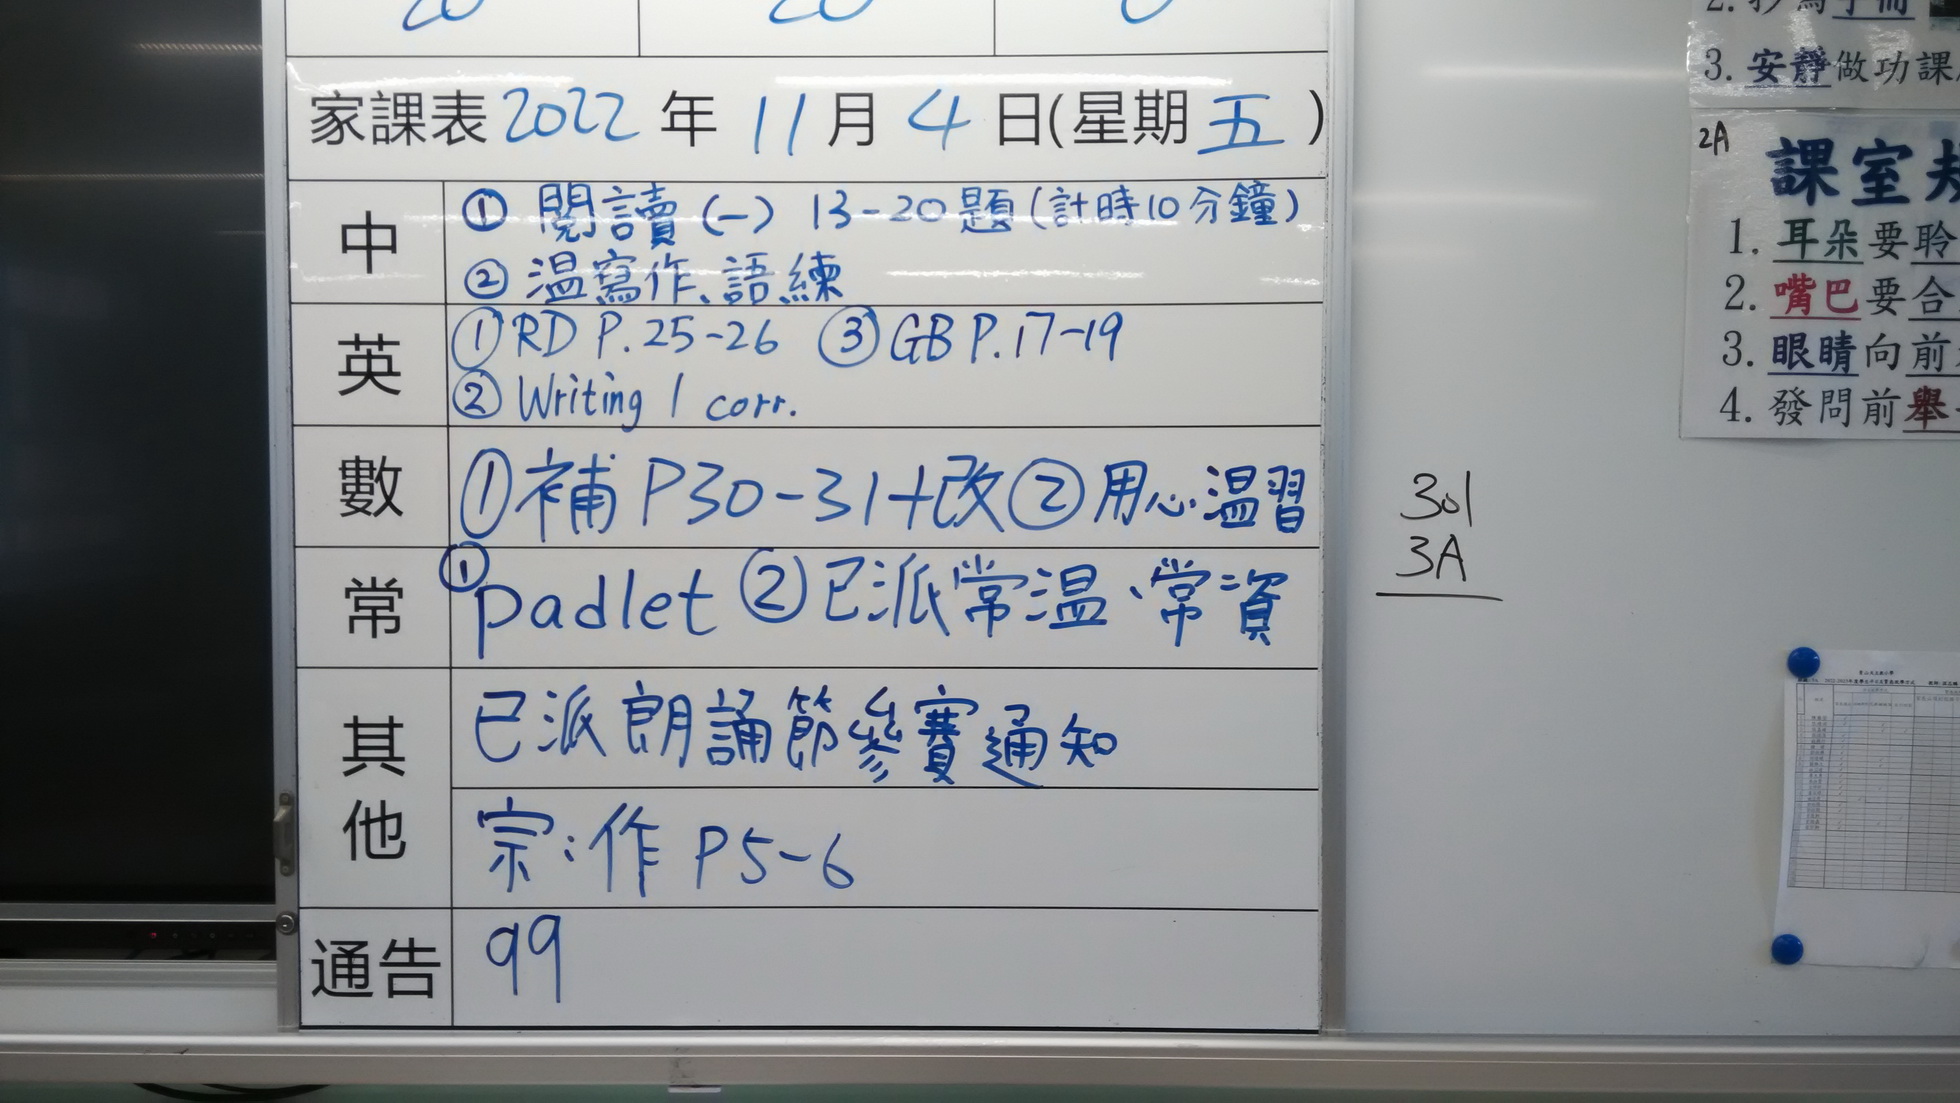 家課表 2022 年 11 月 4 日(星期 五 )
中
① 閱讀(一) 13-20題(計時10分鐘)
② 温寫作、語練
英
① RD P.25-26 ③ GB P.17-19
② Writing 1 corr.
數
① 補 P30-31+改 ② 用心温習
常
① padlet ② 已派常温、常資
其他
已派朗誦節參賽通知
宗:作 P5-6
通告
99
301
3A
3. 安靜做功課
2A
課室
1. 耳朵要聆
2. 嘴巴要合
3. 眼睛向前
4. 發問前舉